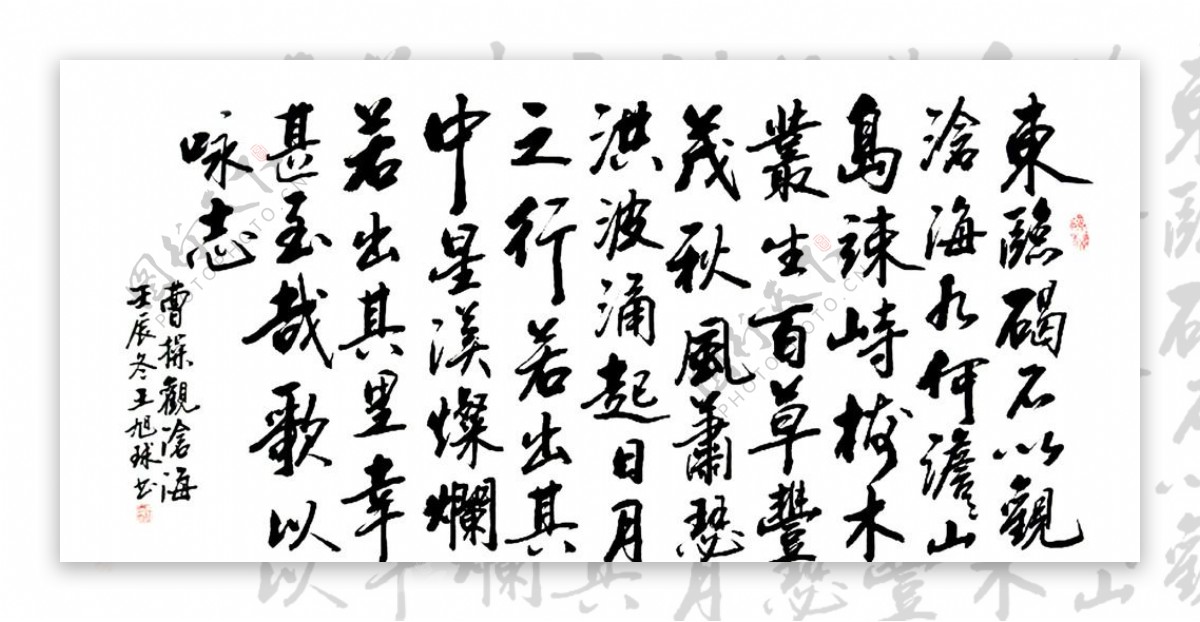 東臨碣石以觀
滄海水何澹〻山
島竦峙樹木
叢生百草豐
茂秋風蕭瑟
洪波涌起日月
之行若出其
中星漢燦爛
若出其里幸
甚至哉歌以
咏志
曹操觀滄海
壬辰冬王旭球书
图行天下
PHOTOPHOTO.CN
图行天下
PHOTOPHOTO.CN